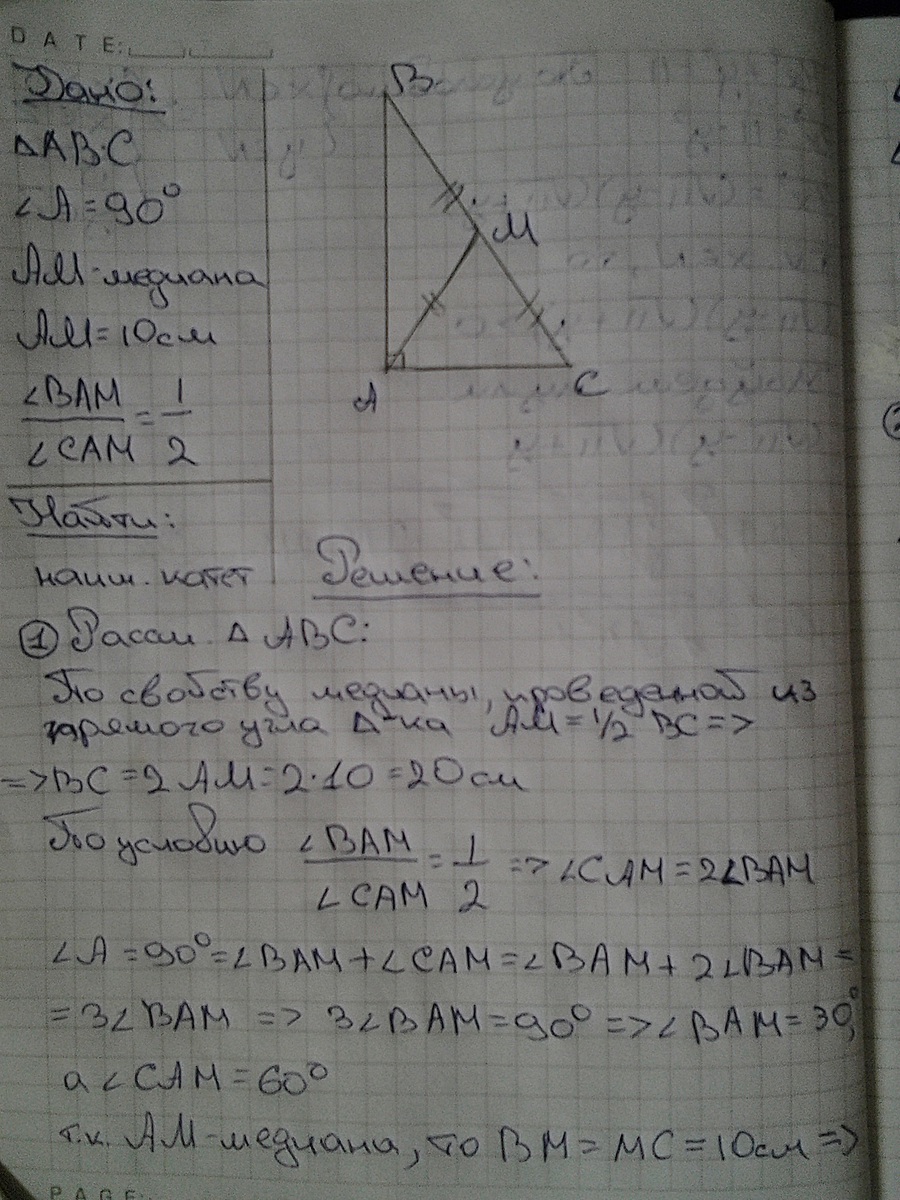 DATE:
Дано:
△ABC
∠A = 90°
AM-медиана
AM = 10см
∠BAM / ∠CAM = 1 / 2
Найти:
наим. катет
B
M
A
C
Решение:
① Рассм. △ ABC:
По свойству медианы, проведенной из
прямого угла △-ка AM = 1/2 BC =>
=> BC = 2 AM = 2·10 = 20 см
По условию ∠BAM / ∠CAM = 1 / 2 => ∠CAM = 2∠BAM
∠A = 90° = ∠BAM + ∠CAM = ∠BAM + 2∠BAM =
= 3∠BAM => 3∠BAM = 90° => ∠BAM = 30°,
а ∠CAM = 60°
т.к. AM-медиана, то BM = MC = 10см =>
PAGE: